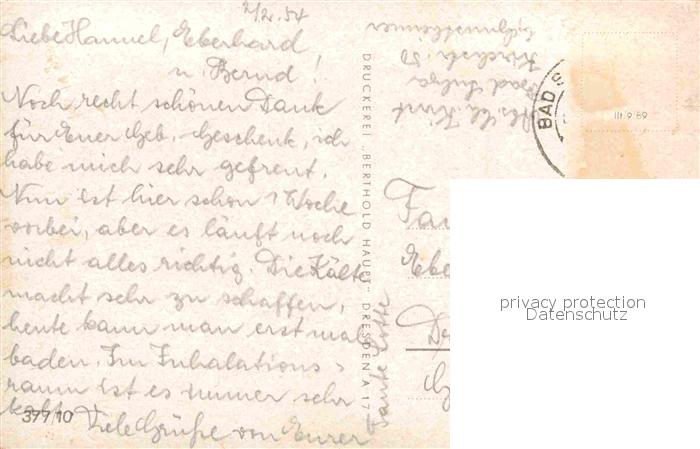 2/2. 54
Liebe Hannel, Eberhard
u. Bernd!
Noch recht schönen Dank
für Euer Geb. Geschenk, ich
habe mich sehr gefreut.
Nun ist hier schon 1 Woche
vorbei, aber es läuft noch
nicht alles richtig. Die Kälte
macht sehr zu schaffen,
heute kann man erst mal
baden. Im Inhalations-
raum ist es immer sehr
kalt. Viele Grüße von Eurer
Tante Lotte
377/10
DRUCKEREI „BERTHOLD HAUPT" DRESDEN A 17
Bad Sulza
Kirchstr.
BAD S
III 9 89
Fa
Ebe
Dr
privacy protection
Datenschutz